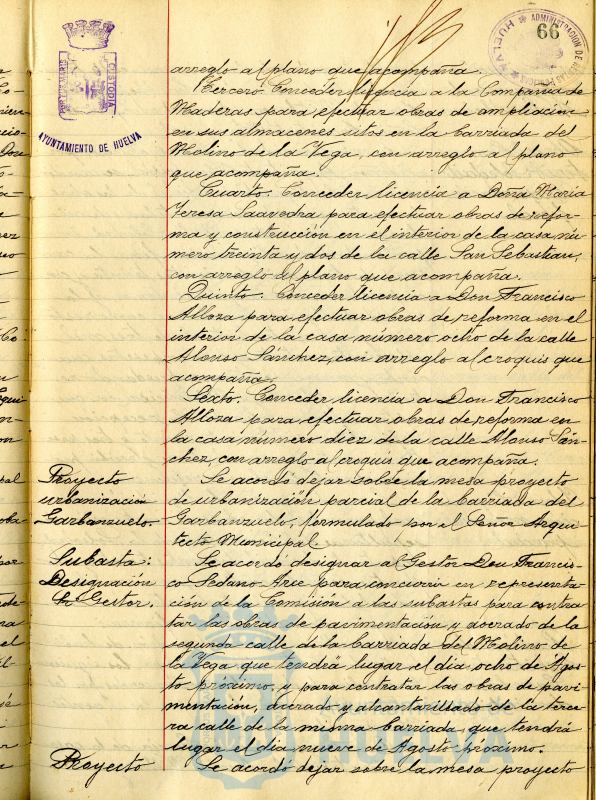 66
ADMINISTRACION DE
HUELVA
CUSTODIA
AYUNTAMIENTO DE HUELVA
arreglo al plano que acompaña.
Tercero. Conceder licencia a la Compañia de
Maderas para efectuar obras de ampliación
en sus almacenes sitos en la barriada del
Molino de la Vega, con arreglo al plano
que acompaña.
Cuarto. Conceder licencia a Doña Maria
Teresa Saavedra para efectuar obras de refor-
ma y construcción en el interior de la casa nú-
mero treinta y dos de la calle San Sebastian,
con arreglo al plano que acompaña.
Quinto. Conceder licencia a Don Francisco
Alloza para efectuar obras de reforma en el
interior de la casa número ocho de la calle
Alonso Sánchez, con arreglo al croquis que
acompaña.
Sexto. Conceder licencia a Don Francisco
Alloza para efectuar obras de reforma en
la casa número diez de la calle Alonso Sán-
chez, con arreglo al croquis que acompaña.
Proyecto
urbanización
Garbanzuelo.
Se acordó dejar sobre la mesa proyecto
de urbanización parcial de la barriada del
Garbanzuelo, formulado por el Señor Arqui-
tecto Municipal
Subasta:
Designación
de Gestor.
Se acordó designar al Gestor Don Francis-
co Sedano Arce para concurrir en representa-
ción de la Comisión a las subastas para contra-
tar las obras de pavimentación y acerado de la
segunda calle de la barriada del Molino de
la Vega que tendrá lugar el día ocho de Agos-
to próximo, y para contratar las obras de pavi-
mentación, acerado y alcantarillado de la terce-
ra calle de la misma barriada, que tendrá
lugar el día nueve de Agosto próximo.
Proyecto
Se acordó dejar sobre la mesa proyecto
HUELVA